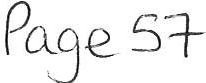 Page 57